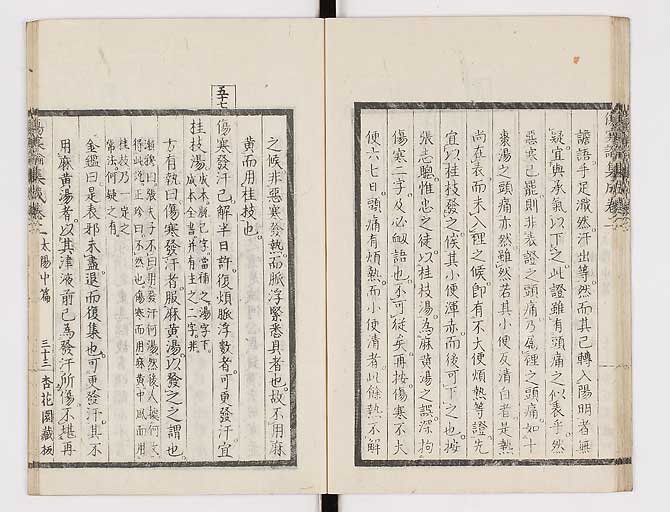 譫語。手足濈然。汗出等。然而其已轉入陽明者無
疑。宜與承氣。以下之。此證雖有頭痛之似表乎。然
惡寒已罷。則非表證之頭痛。乃屬裡之頭痛。如十
棗湯之頭痛亦然。雖然若其小便反清白者。是熱
尚在表而未入裡之候。卽有不大便煩熱等證。先
宜以桂枝發之。俟其小便渾赤而後可下之也。按
張志聰惟忠之徒。以桂枝湯。為麻黃湯之誤。深拘
傷寒二字。及必衂語也。不可從矣。再按。傷寒不大
便六七日。頭痛有煩熱。而小便清者。此餘熱不解
之候。非惡寒發熱。而脈浮緊悉具者也。故不用麻
黃而用桂枝也。
五十七
傷寒發汗已。解半日許。復煩脈浮數者。可更發汗宜
桂枝湯。成本。脫已字。當補。之湯字下。成本全書并有主之二字。非。
方有執曰。傷寒發汗者。服麻黃湯。以發之之謂也。
桂枝乃一定之常法。何疑之有。
金鑑曰。是表邪未盡。退而復集也。可更發汗。其不
用麻黃湯者。以其津液前已為發汗所傷。不堪再
傷寒論集成卷二 太陽中篇 三十三 杏花園藏板